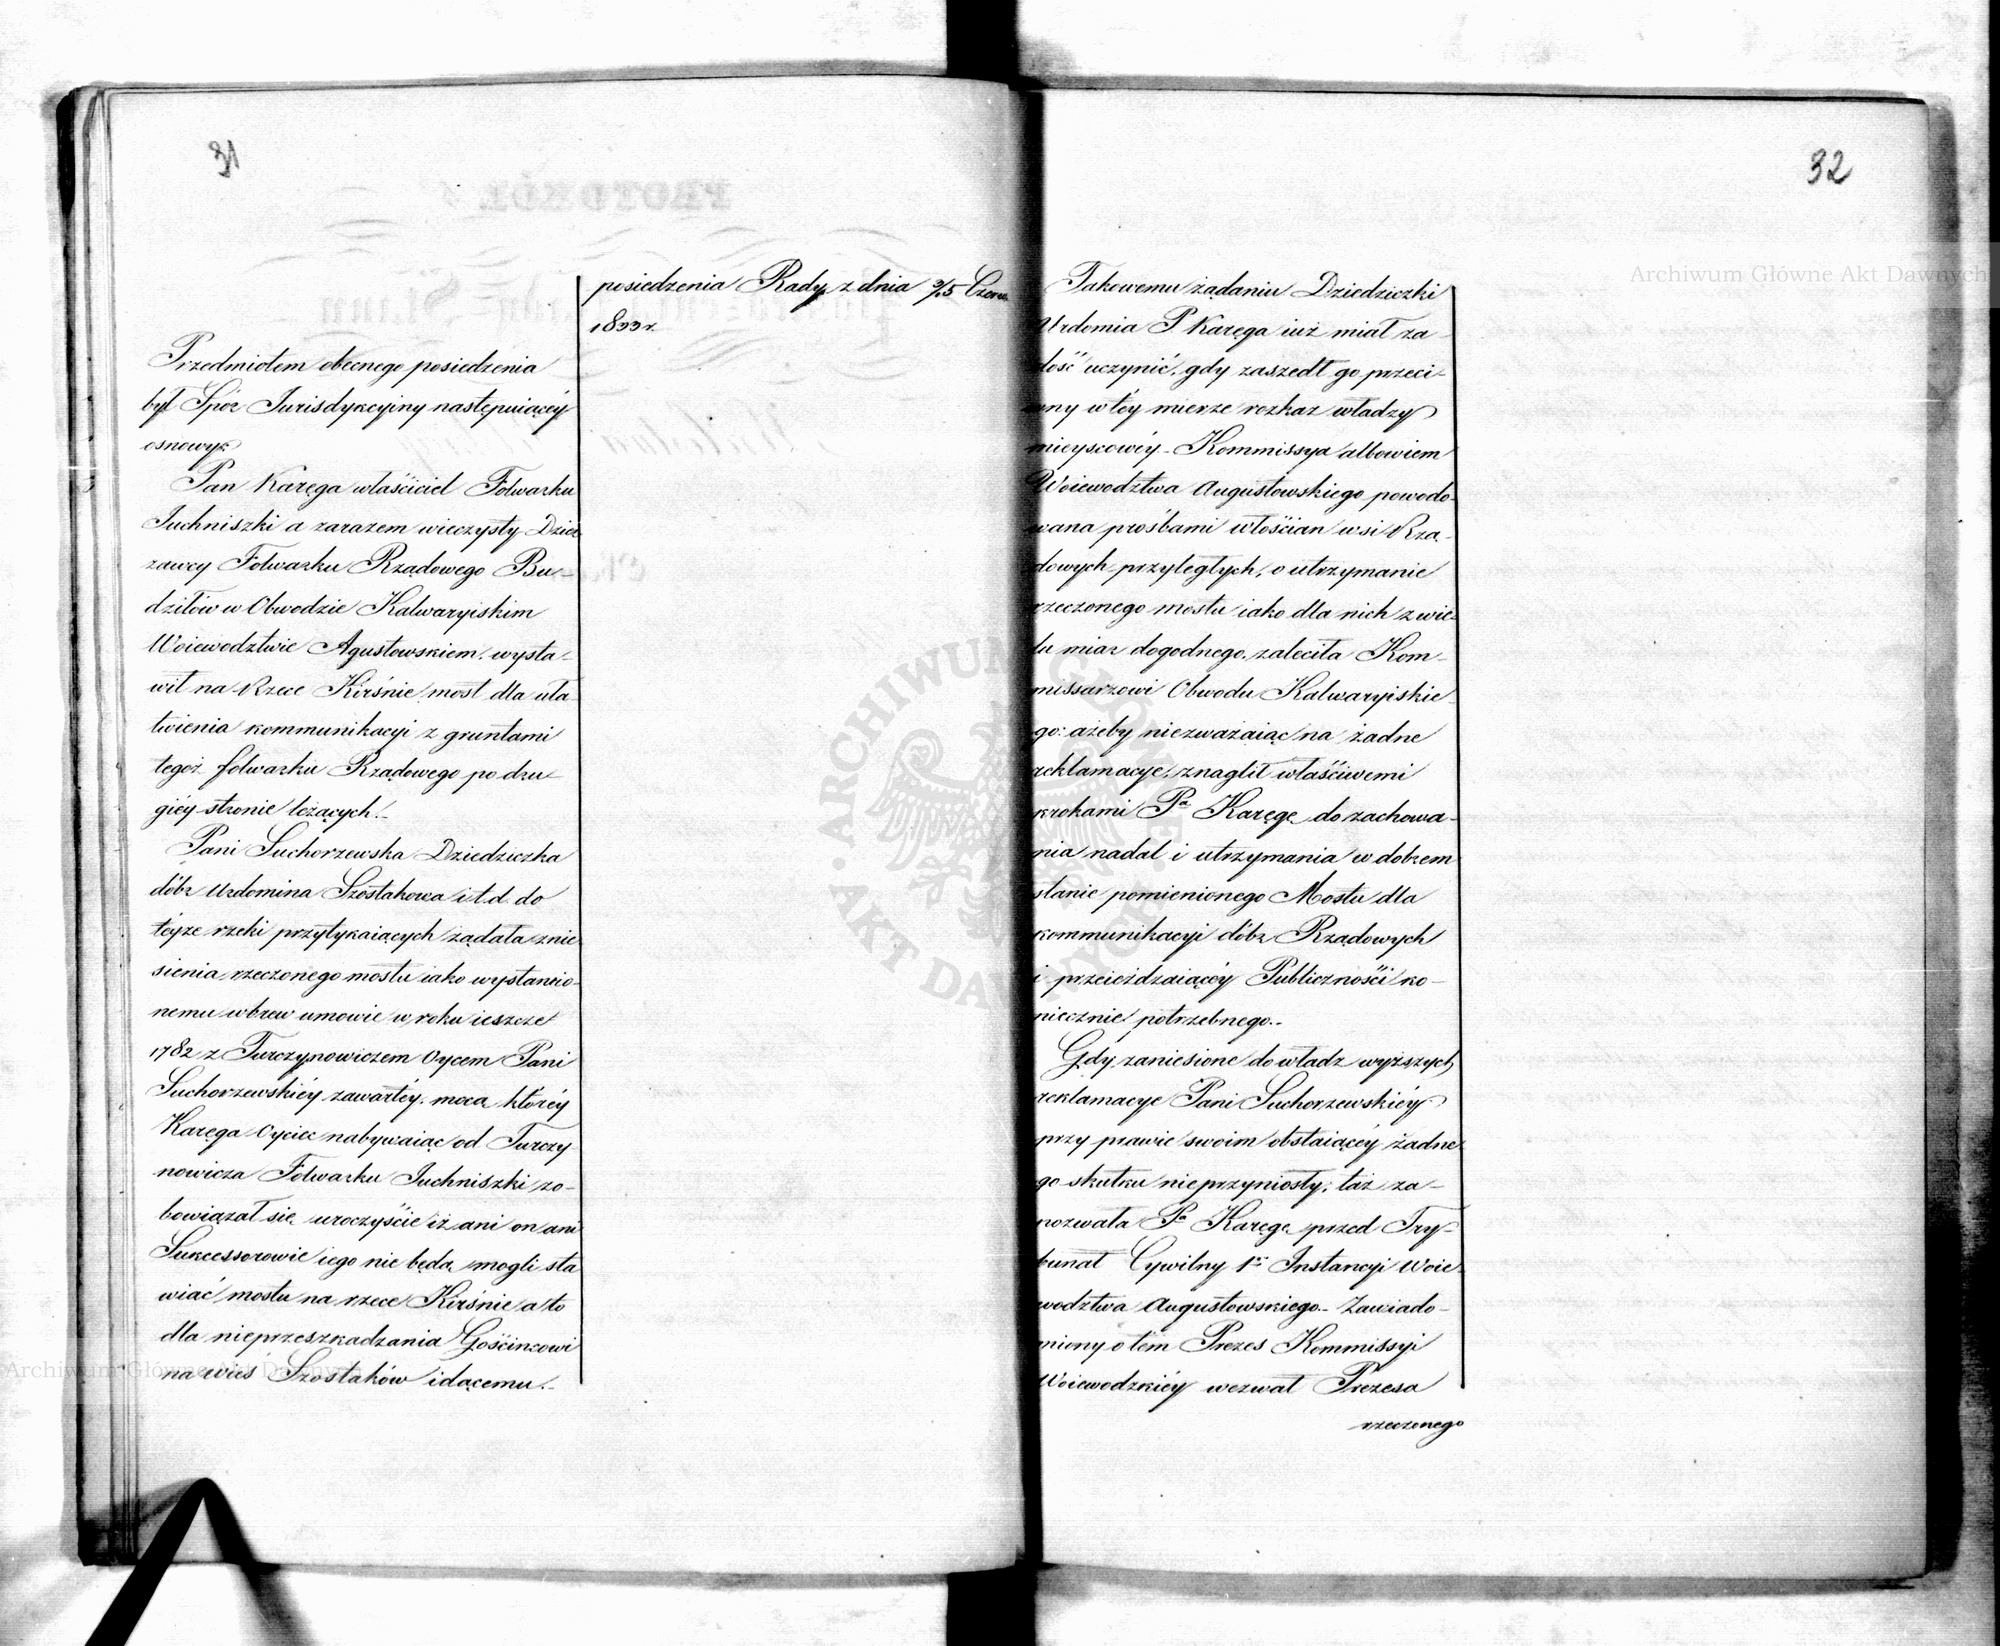 31
posiedzenia Rady z dnia 3/15 Czerw.
1833 r.
Przedmiotem obecnego posiedzenia
był Spór Jurisdykcyjny następuiącéy
osnowy:
Pan Karęga właściciel Folwarku
Juchniszki a zarazem wieczysty Dzier
zawcy Folwarku Rządowego Bu-
dziłów w Obwodzie Kalwaryiskim
Woiewodztwie Agustowskiem, wysta-
wił na Rzece Kirśnie most dla uła
twienia kommunikacyi z gruntami
tegoż folwarku Rządowego po dru-
giéy stronie leżących.-
Pani Suchorzewska Dziedziczka
dóbr Urdomina Szostakowa i t.d. do
téyże rzeki przytykaiących żądała znie
sienia rzeczonego mostu iako wystawio-
nemu wbrew umowie w roku ieszcze
1782 z Turczynowiczem Oycem Pani
Suchorzewskiéy zawartéy, mocą któréy
Karęga Oyciec nabywaiąc od Turczy
nowicza Folwarku Juchniszki zo-
bowiązał się uroczyście iż ani on ani
Sukcessorowie iego nie będą mogli sta
wiać mostu na rzece Kirśnie a to
dla nieprzeszkadzania Gościńcowi
na wieś Szostaków idącemu.-
32
Takowemu żądaniu Dziedziczki
Urdomia P Karęga iuż miał za-
dość uczynić, gdy zaszedł go przeci-
wny w téy mierze rozkaz władzy
mieyscowéy - Kommissya albowiem
Woiewodztwa Augustowskiego powodo-
wana prośbami włościan wsi Rzą-
dowych przyległych, o utrzymanie
rzeczonego mostu iako dla nich z wie-
lu miar dogodnego, zaleciła Kom-
missarzowi Obwodu Kalwaryiskie-
go: ażeby niezważaiąc na żadne
reklamacye, znaglił właściwemi
krokami Pa Karęgę do zachowa-
nia nadal i utrzymania w dobrem
stanie pomienionego Mostu dla
kommunikacyi dóbr Rządowych
i przeieżdzaiącéy Publiczności ko-
niecznie potrzebnego.-
Gdy zaniesione do władz wyższych
reklamacye Pani Suchorzewskiéy
przy prawie swoim obstaiącéy żadne
go skutku nieprzyniosły, taż za-
pozwała Pa Karęgę przed Try-
bunał Cywilny 1éi Instancyi Woie-
wodztwa Augustowskiego.- Zawiado-
miony o tem Prezes Kommissyi
Woiewodzkiéy wezwał Prezesa
rzeczonego
Archiwum Główne Akt Dawnych
ARCHIWUM GŁÓWNE AKT DAWNYCH
Archiwum Główne Akt Dawnych